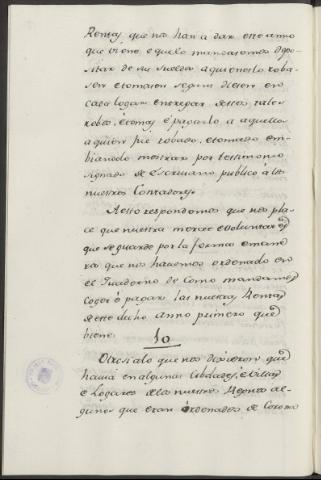 Rentas que nos han a dar este año
que viene e que lo mandasemos depo-
sitar de su sueldo a quien esto roba-
sen etomasen segun dicen en
cada logar entregar destos tales
robos, é tomas é pagarlo a aquellos
a quien fue robado, etomado em-
biandolo mostrar por testimonio
signado de escrivano publico á los
nuestros Contadores.
A esto respondemos que nos pla-
ce que nuestra merced e voluntad es
que se guarde por la forma e mane-
ra que nos havemos ordenado en
el Quaderno de como mandamos
coger é pagar las nuestras Rentas
deste dicho anno primero que
biene.
10
Otrosi alo que nos dixieron que
havia en algunas cibdades, é Villas
e Logares delos nuestros Regnos al-
gunos que eran órdenados de Corona